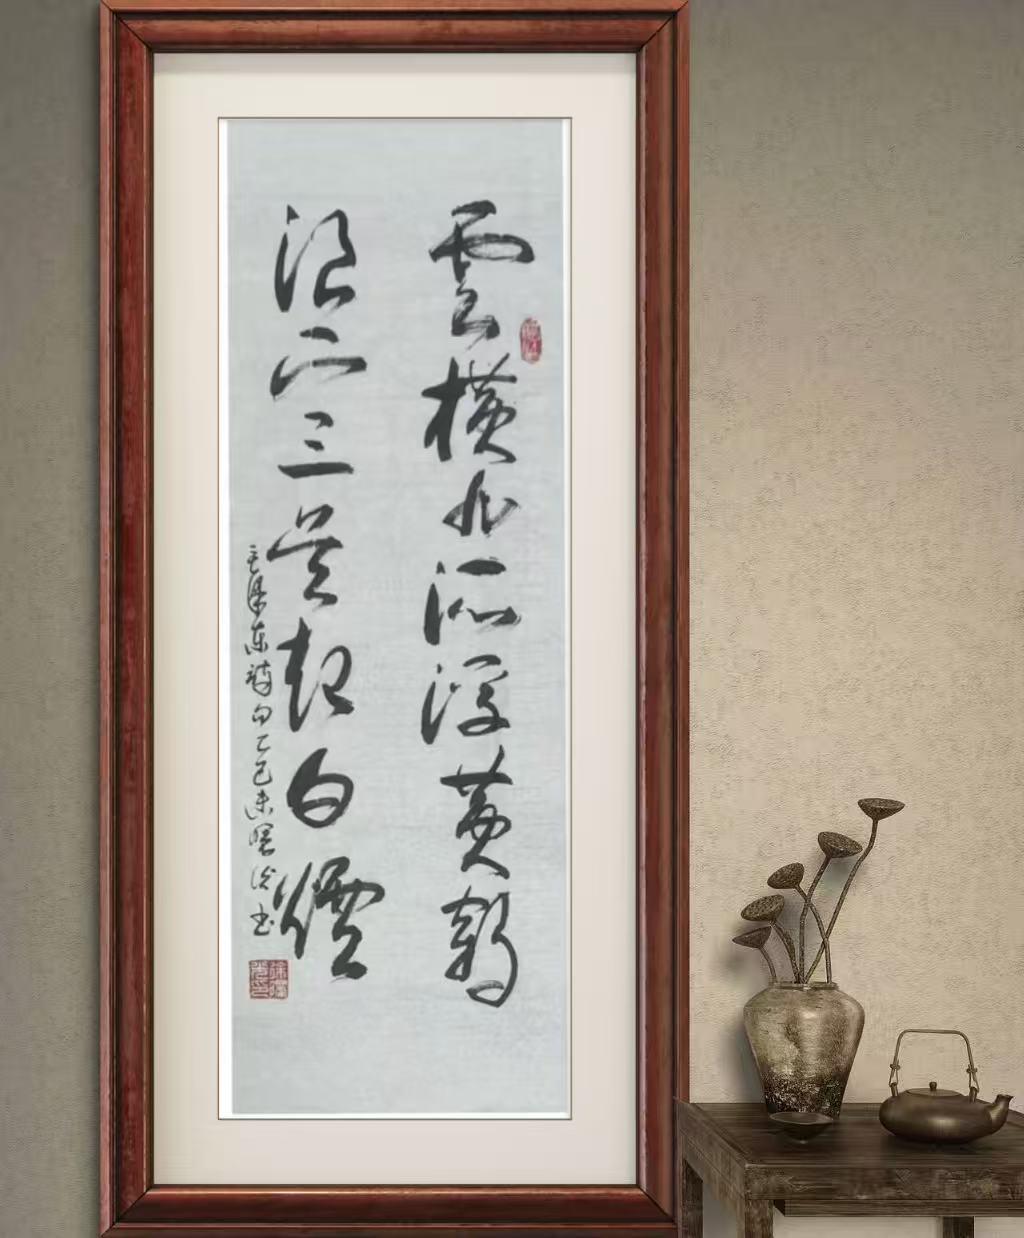 雲橫九派浮黃鶴
浪下三吳起白煙
毛澤東詩句乙巳 曙 書